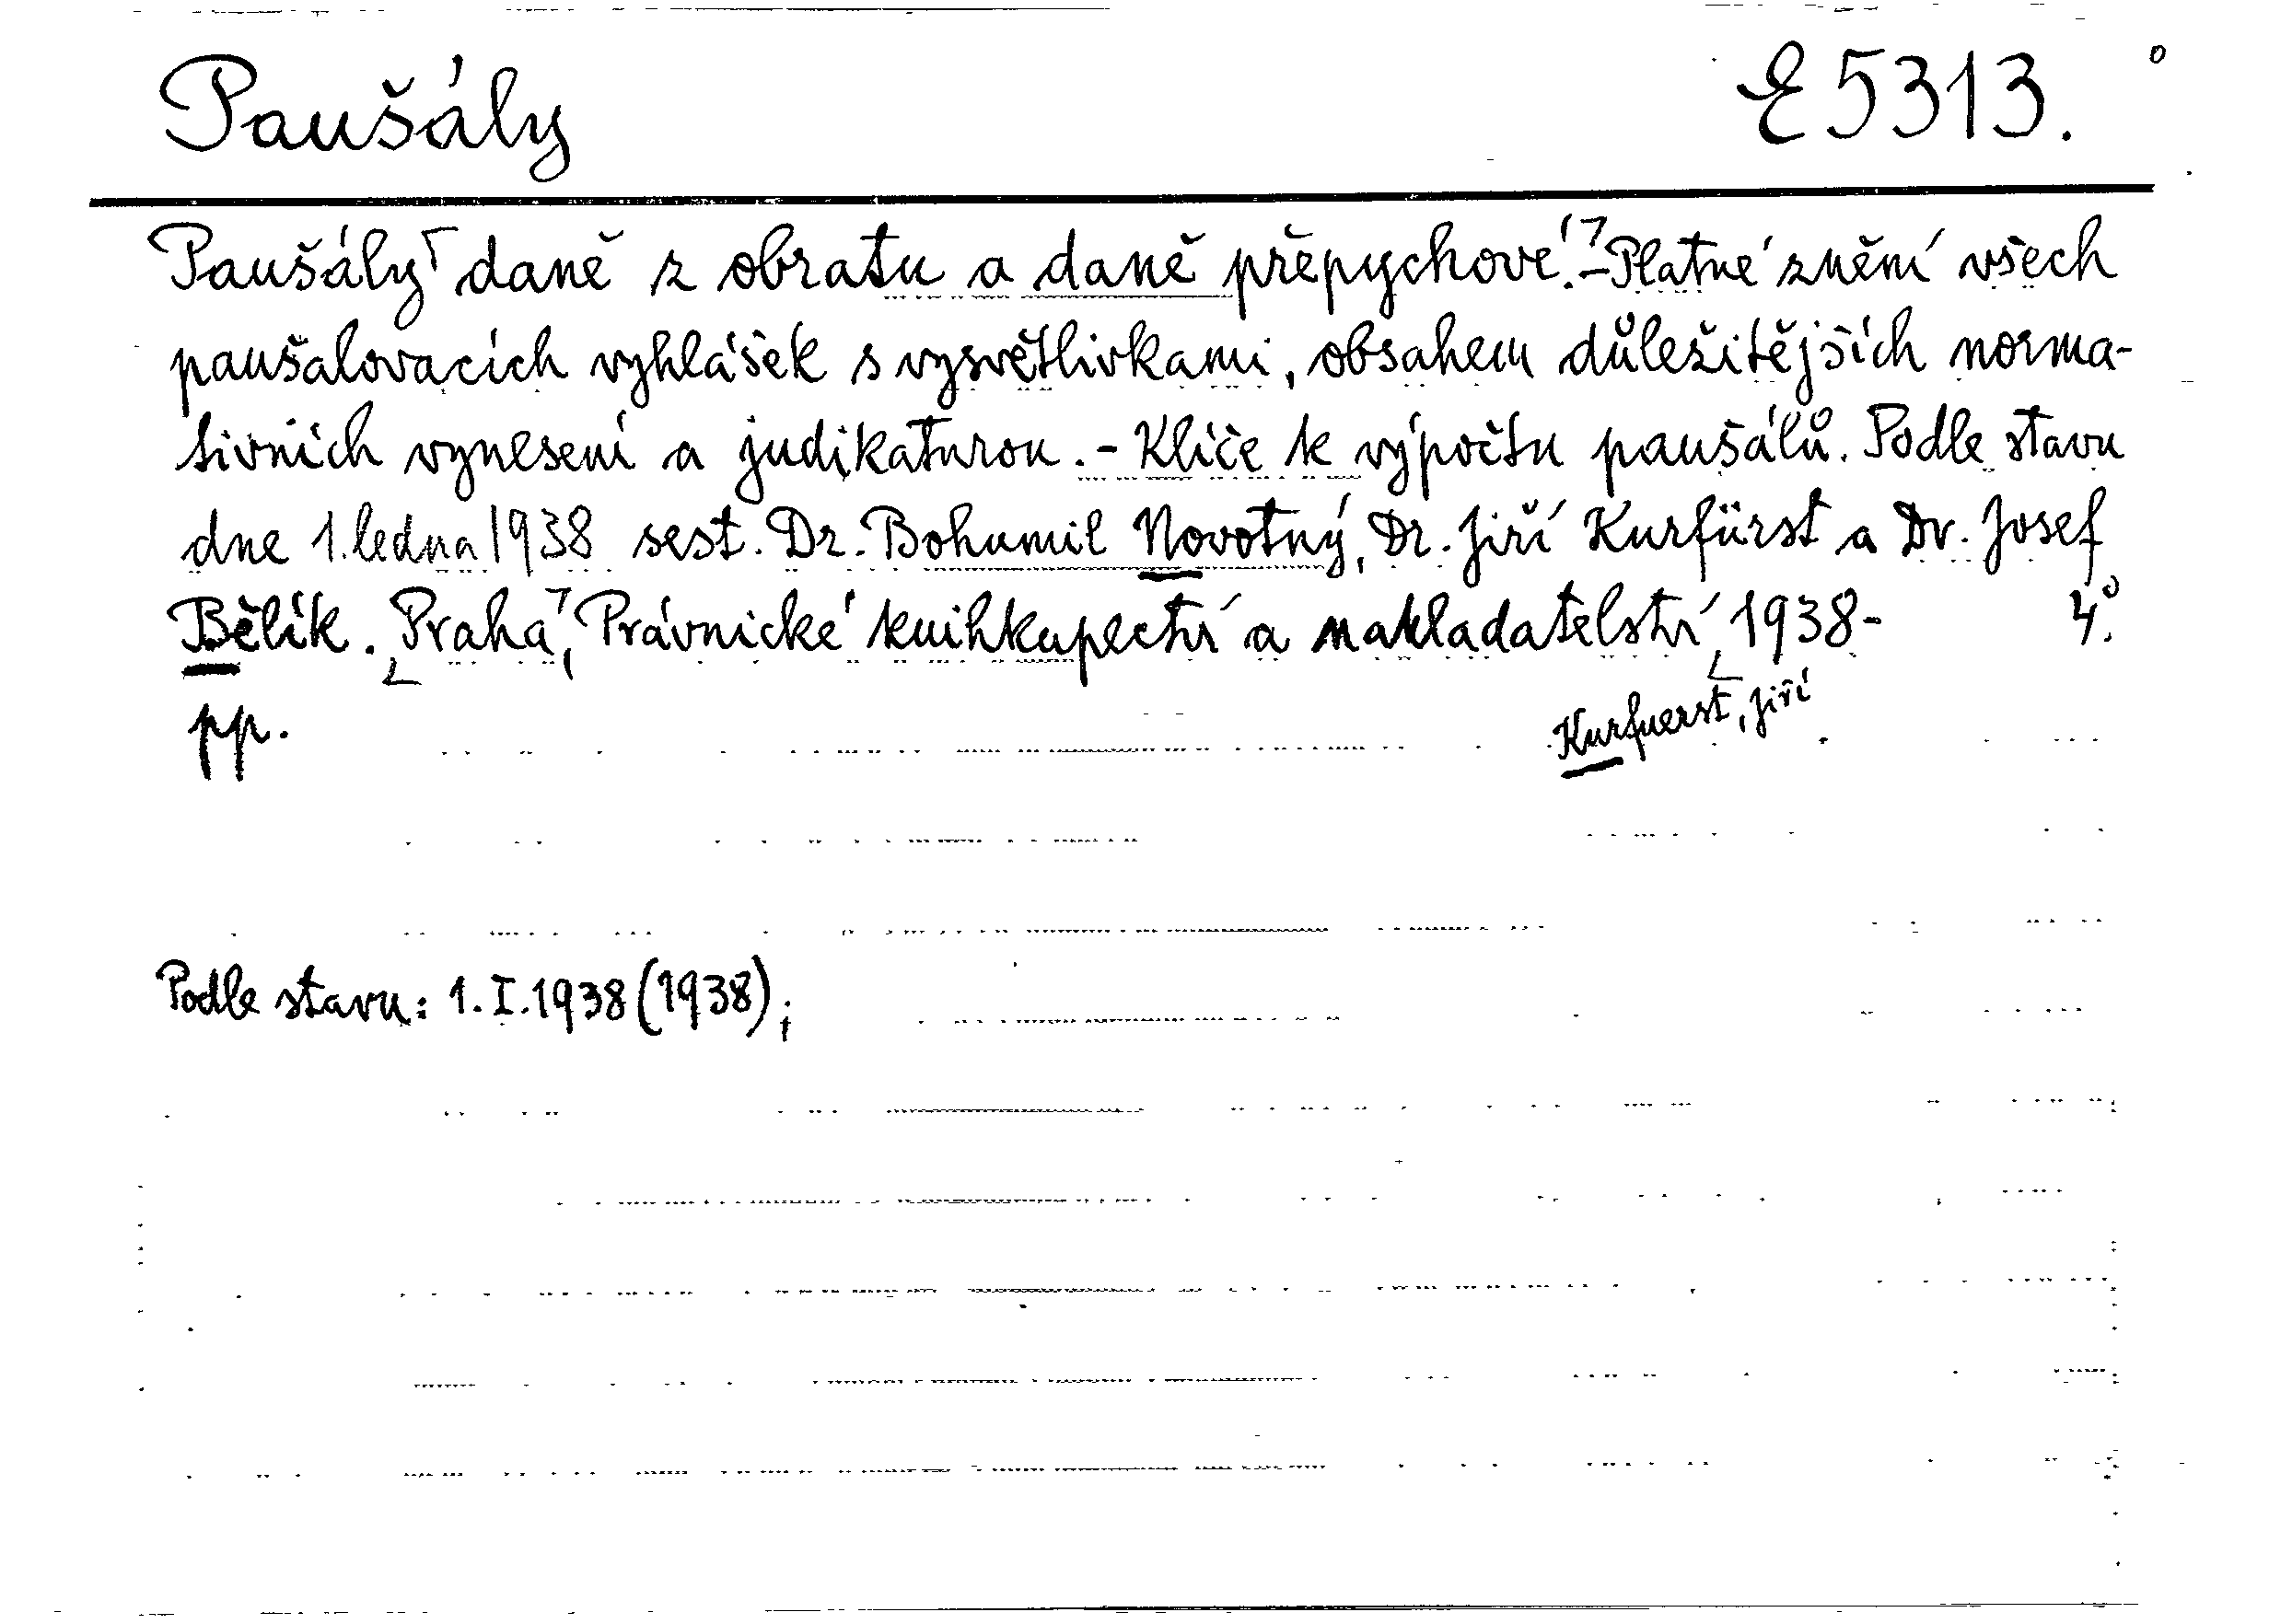 Paušály E 5313.
Paušály daně z obratu a daně přepychové. - Platné znění všech
paušalovacích vyhlášek s vysvětlivkami, obsahem důležitějších norma-
tivních vynesení a judikaturou. - Klíče k výpočtu paušálů. Podle stavu
dne 1. ledna 1938 sest. Dr. Bohumil Novotný, Dr. Jiří Kurfürst a Dr. Josef
Bělík. Praha, Právnické knihkupectví a nakladatelství, 1938- 4°.
pp.
Kurfuerst, Jiří
Podle stavu: 1. I. 1938 (1938);